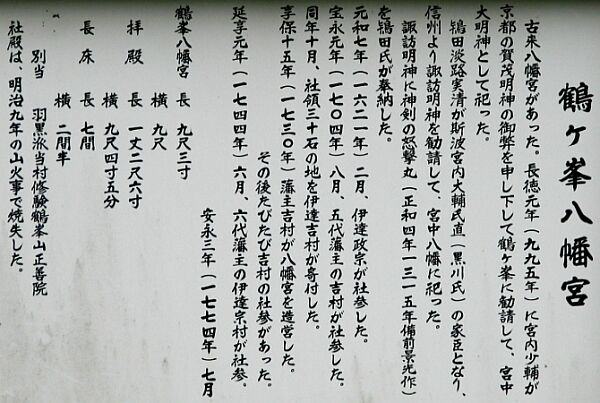 鶴ケ峯八幡宮
古来八幡宮があった。長徳元年（九九五年）に宮内少輔が
京都の賀茂明神の御弊を申し下して鶴ケ峯に勧請して、宮中
大明神として祀った。
鴇田淡路実清が斯波宮内大輔氏直（黒川氏）の家臣となり、
信州より諏訪明神を勧請して、宮中八幡に祀った。
諏訪明神に神剣の怒撃丸（正和四年一三一五年備前景光作）
を鴇田氏が奉納した。
元和七年（一六二一年）二月、伊達政宗が社参した。
宝永元年（一七〇四年）八月、五代藩主の吉村が社参した。
同年十月、社領三十石の地を伊達吉村が寄付した。
享保十五年（一七三〇年）藩主吉村が八幡宮を造営した。
その後たびたび吉村の社参があった。
延享元年（一七四四年）六月、六代藩主の伊達宗村が社参。
安永三年（一七七四年）七月
鶴峯八幡宮 長 九尺三寸
横 九尺
拝殿 長 一丈二尺六寸
横 九尺四寸五分
長床 長 七間
横 二間半
別当 羽黒派当村修験鶴峯山正善院
社殿は、明治九年の山火事で焼失した。